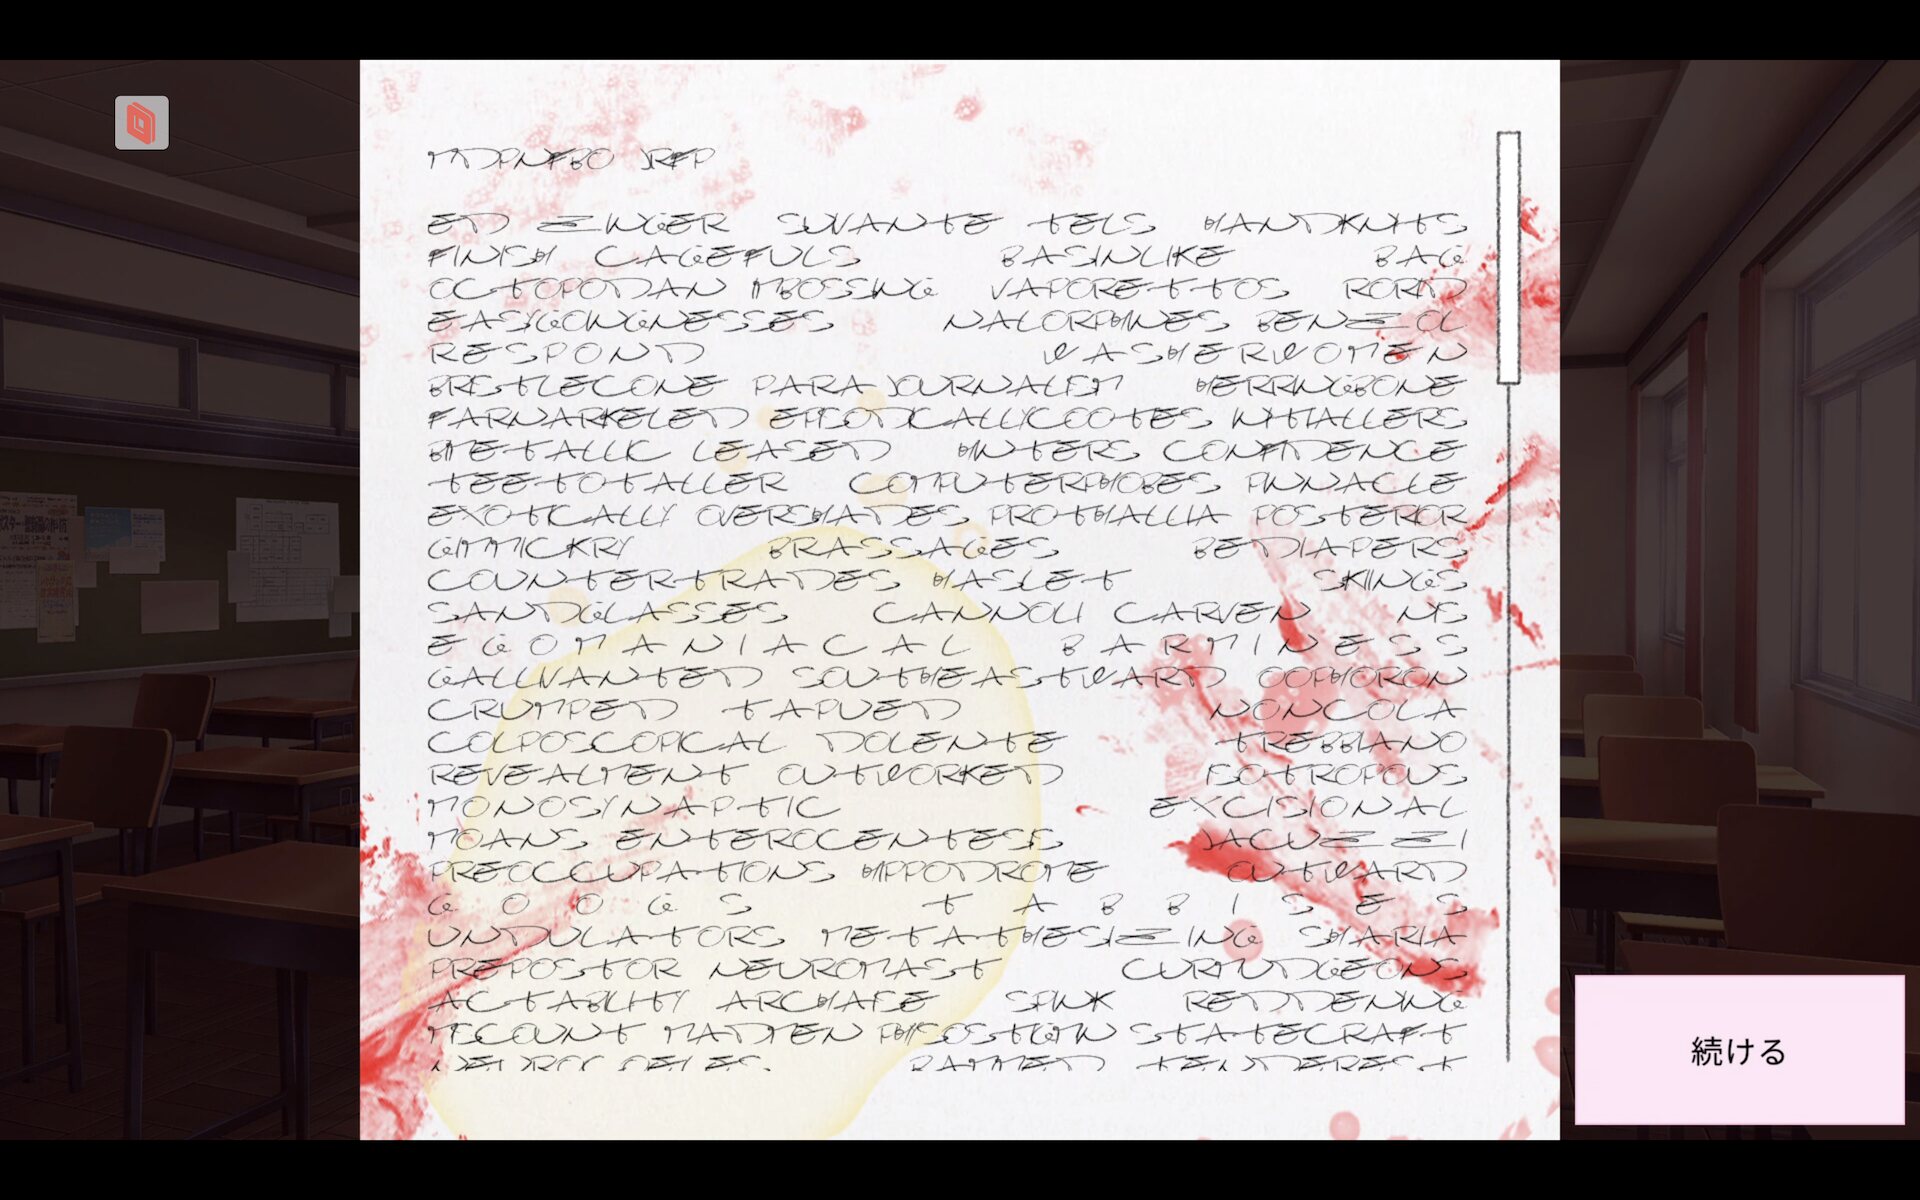 ED ZINGER SUIVANTE TELS HANDKNITS
FINISH CAGEFULS BASINLIKE BAG
OCTOPODAN IMBOSSING VAPORETTOS RORID
EASYGOINGNESSES NALORPHINES BENZOL
RESPOND WASHERWOMEN
BRISTLECONE PARAJOURNALISM HERRINGBONE
FARNARKELED EPISODICALLY COOTIES INITIALLERS
BIMETALLIC LEASED HINTERS CONFIDENCE
TEETOTALLER COMPUTERPHOBES PINNACLE
EXOTICALLY OVERSHADES PROTHALLIA POSTERIOR
GIMMICKRY BRASSAGES BEDIAPERS
COUNTERTRADES HASLET SKIINGS
SANDGLASSES CANNOLI CARVEN NIS
EGOMANIACAL BARMINESS
GALLIVANTED SOUTHEASTWARD OOPHORON
CRUMPED TAPUED NONCOLA
COLPOSCOPICAL DOLENTE TREBBIANO
REVEALMENT OUTWORKED ISOTROPOUS
MONOSYNAPTIC EXCISIONAL
MOANS ENTEROCENTESIS JACUZZI
PREOCCUPATIONS HIPPODROME OUTWARD
GOOGS TABBISES
UNDULATORS METATHESIZING SHARIA
PREPOSTOR NEUROMAST CURMUDGEONS
ACTABILITY ARCHAISE SPINK REDDENING
MISCOUNT MADMEN PHYSOSTIGMIN STATECRAFT
TENDEREST
続ける